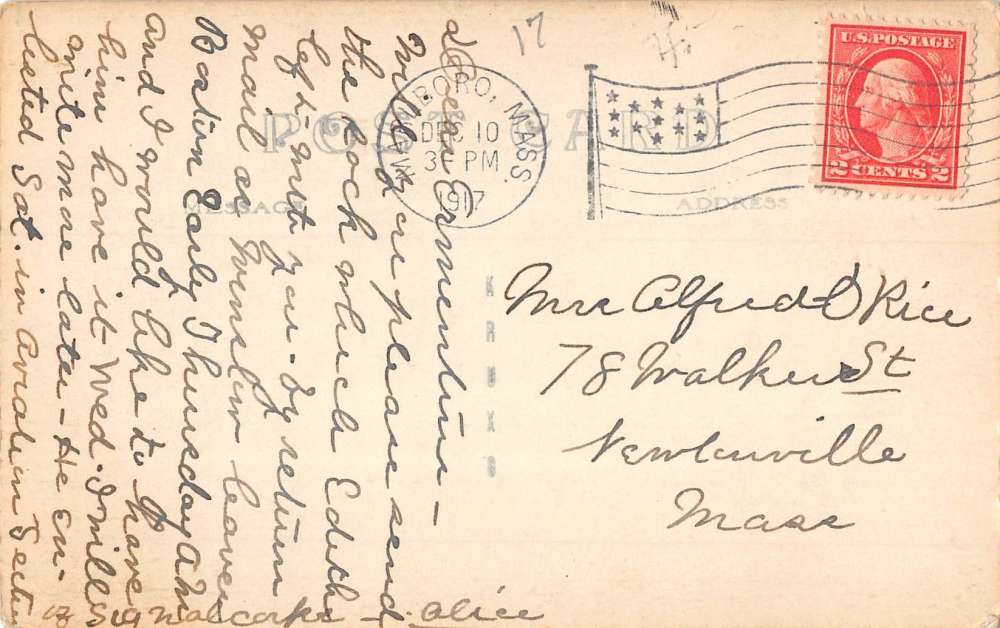 17
POST CARD
MESSAGE
ADDRESS
MARLBORO, MASS.
DEC 10
3 PM
1917
U.S. POSTAGE
2 CENTS 2
Mrs Alfred D Rice
78 Walker St
Newtonville
Mass
Dear
Will you please send
the book which Edith
left with you - by return
mail as Winslow leaves
Boston Early Thursday A.M.
and I would like to have
him have it Wed. I will
write more later - He en-
listed Sat. in Aviation Section
of Signal corps - Alice